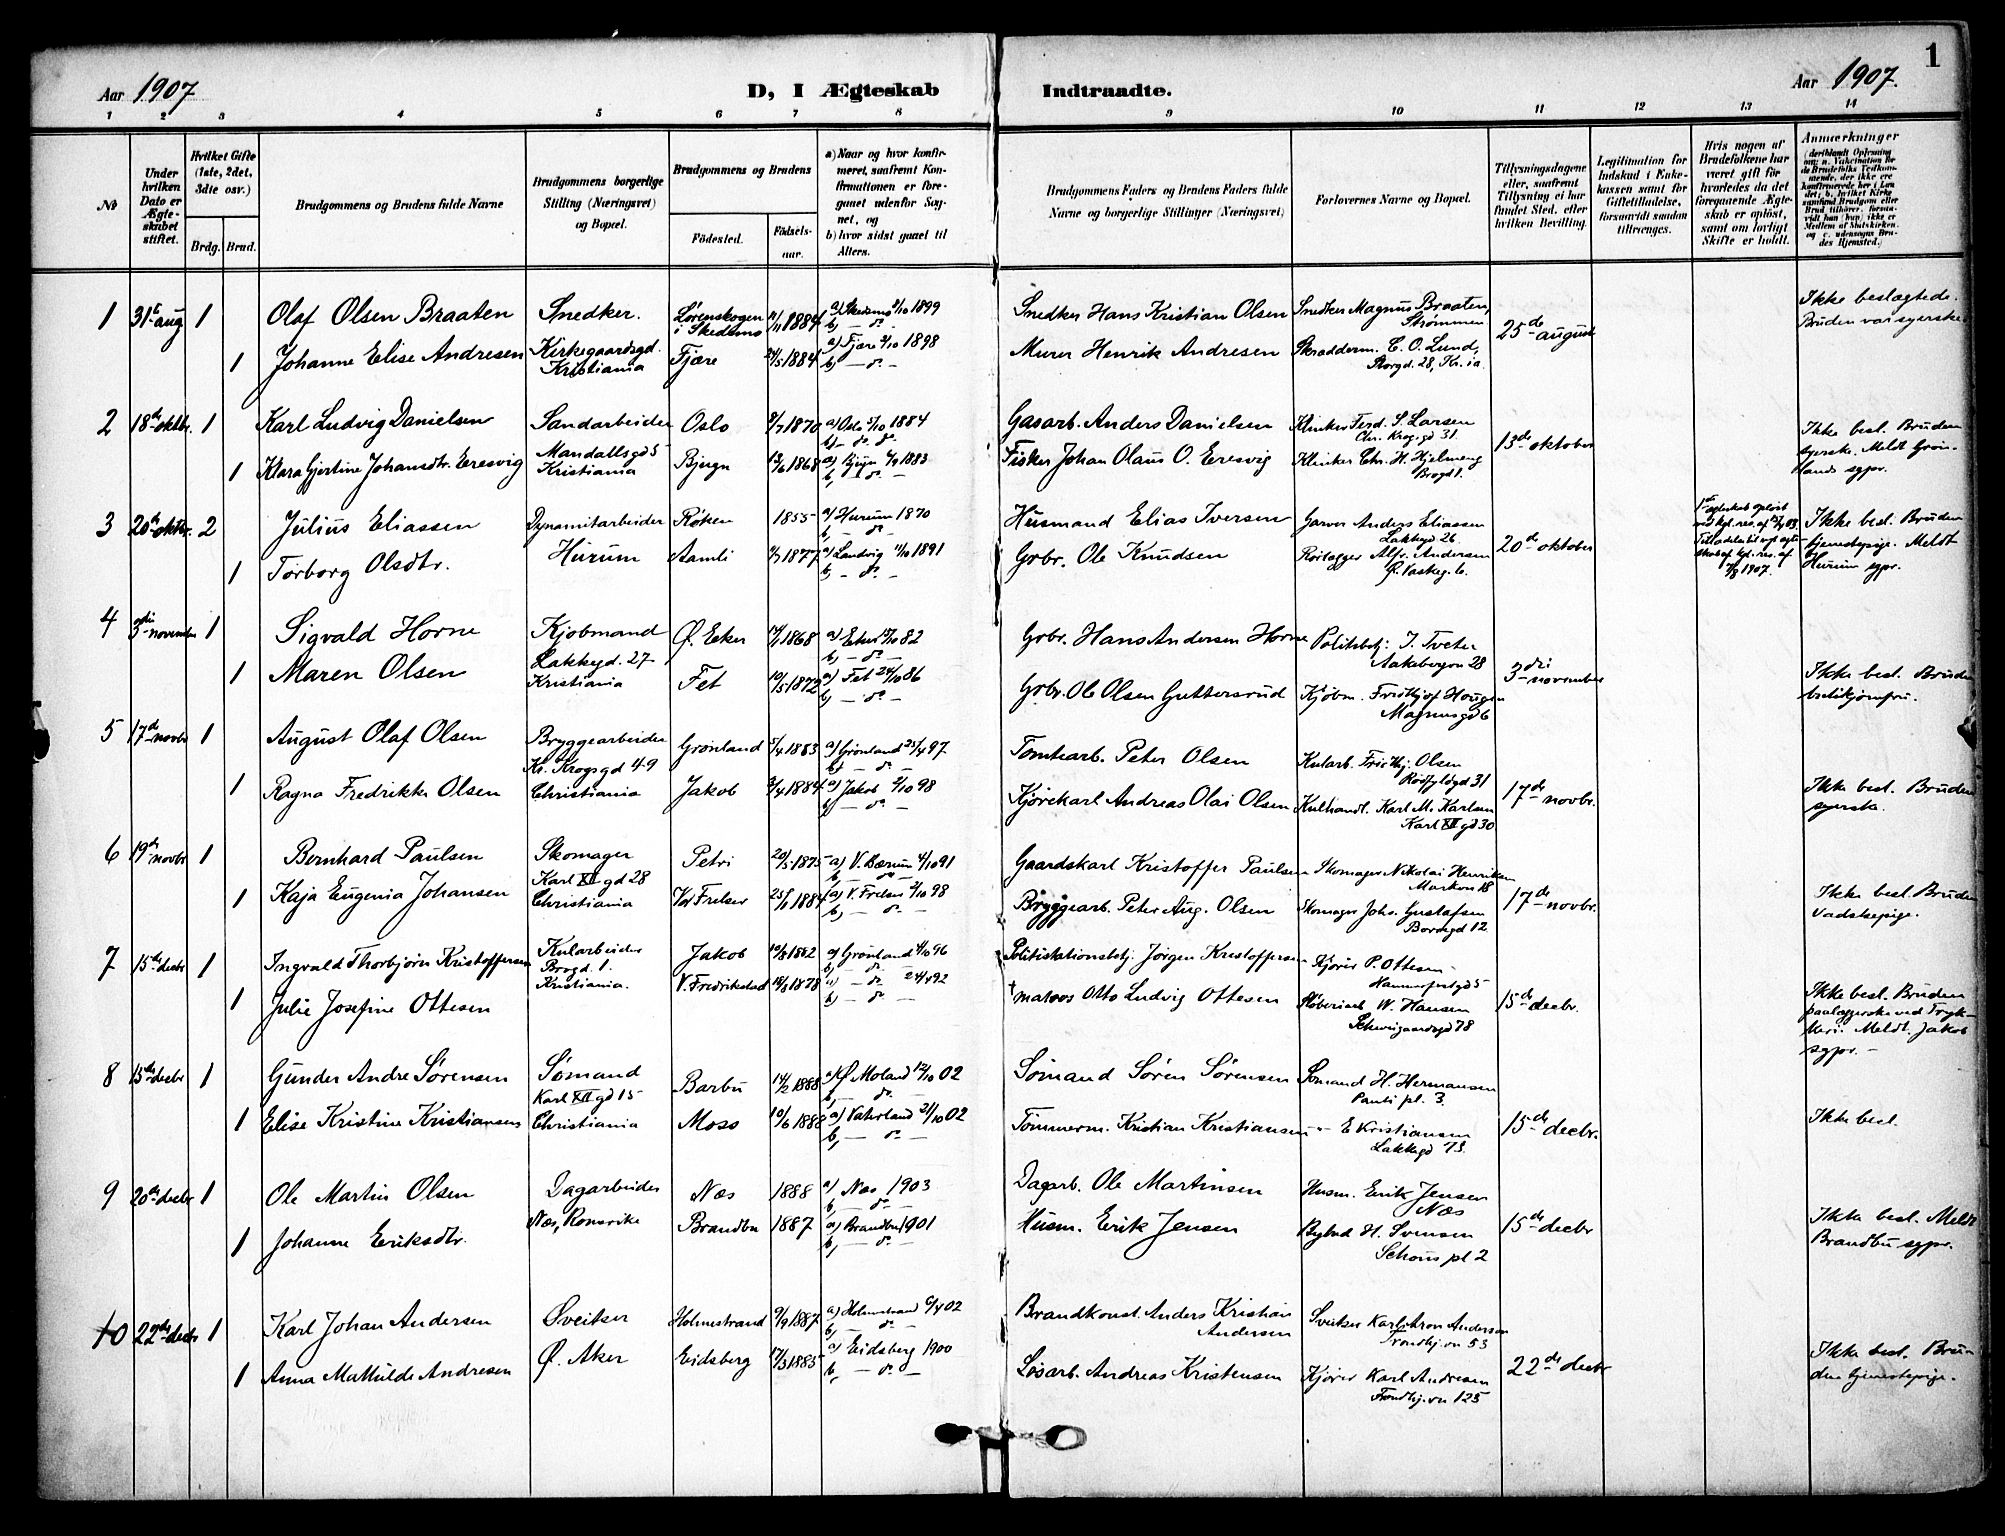 1
Aar 1907
D, I Ægteskab Indtraadte.
Aar 1907.
1 2 3 4 5 6 7 8 9 10 11 12 13 14
№
Under hvilken Dato er Ægteskabet stiftet.
Hvilket Gifte (1ste, 2det, 3dte osv.)
Brdg. Brud.
Brudgommens og Brudens fulde Navne
Brudgommens borgerlige Stilling (Næringsvei) og Bopæl.
Brudgommens og Brudens
Fødested.
Fødselsaar.
a) Naar og hvor konfirmeret, saafremt Konfirmationen er foregaaet udenfor Sognet, og
b) hvor sidst gaaet til Alters.
Brudgommens Faders og Brudens Faders fulde Navne og borgerlige Stillinger (Næringsvei)
Forlovernes Navne og Bopæl.
Tillysningsdagene eller, saafremt Tillysning ei har fundet Sted, efter hvilken Bevilling.
Legitimation for Indskud i Enkekassen samt for Giftetilladelse, forsaavidt saadan tiltrænges.
Hvis nogen af Brudefolkene har været gift før hvorledes da det foregaaende Ægteskab er opløst, samt om lovligt Skifte er holdt.
Anmærkninger
1 31te aug 1 Olaf Olsen Braaten Snedker. Lørenskogen i Skedsmo 11/11 1884 a) Skedsmo 1/10 1899 Snedker Hans Kristian Olsen Snedker Magnus Braaten, Strømmen 25de august Ikke beslægtede. Bruden var syerske
b) — do. —
1 Johanne Elise Andresen Kirkegaardsgd. Kristiania Fjære 24/5 1884 a) Fjære 2/10 1898 Murer Henrik Andresen Skrædderm. C. O. Lund, Storgd. 28, Kr.ia
b) — do. —
2 18de oktbr. 1 Karl Ludvig Danielsen Sandarbeider Oslo 8/7 1870 a) Oslo 5/10 1884 Gasarb. Anders Danielsen Klinker Ferd. S. Larsen Chr. Krog.gd 31 13de oktober Ikke besl. Bruden syerske. Meldt Grønlands sgpr.
b) — do. do.
1 Klara Gjertine Johansdtr. Eresvig Mandallsgd 5 Kristiania Bjugn 13/6 1868 a) Bjugn 1883 Fisker Johan Olaus O. Eresvig Klinker Chr. H. Hjelmeng Brogd 1.
3 20de oktbr. 2 Julius Eliassen Dynamitarbeider Røken 1855 a) Hurum 1870 Husmand Elias Iversen Garver Anders Eliassen Lakkegd 26 20de oktober Ikke besl. Bruden tjenestepige. Meldt Hurum sgpr.
b) — do.
1 Torborg Olsdtr. Hurum Aamli 1877 a) Landvig 11/10 1891 Grbr. Ole Knudsen Rørlægger Alfr. Andersen Ø. Vaskeg. 6.
b) — do. —
4 3die november 1 Sigvald Horne Kjøbmand Ø. Eker 1868 a) Eker 82 Grbr. Hans Andersen Horne Politibtj. I. Tveter Aakebergvn 28 3die november Ikke besl. Bruden butikjomfru.
b) — do. —
1 Maren Olsen Lakkegd. 27 Kristiania Fet 10/5 1872 a) Fet 24/10 86 Grbr. Ole Olsen Guttersrud Kjøbm. Fridthjof Hougen Magnusgd 6
b) — do. —
5 17de novbr 1 August Olaf Olsen Bryggearbeider Grønland 5/4 1883 a) Grønland 25/4 97 Tomtearb. Peter Olsen Kularb. Fridthj. Olsen Rødfyldgd 31 17de novbr. Ikke besl. Bruden syerske.
b) — do. —
1 Ragna Fredrikke Olsen Kr. Krogsgd 49 Christiania Jakob 3/4 1884 a) Jakob 2/10 98 Kjørekarl Andreas Olai Olsen Kulhandl. Karl M. Karlsen Karl XII gd 30
b) — do. —
6 19de novbr 1 Bernhard Paulsen Skomager Petri 20/5 1875 a) V. Bærum 4/10 91 Gaardskarl Kristoffer Paulsen Skomager Nikolai Henriksen Markvn 18 17de novbr. Ikke besl. Bruden vadskepige.
b) — do. —
1 Kaja Eugenia Johansen Karl XII gd 28 Christiania Vor Frelser 25/1 1884 a) V. Frelser 2/10 98 Bryggearb. Peter Aug. Olsen Skomager Johs. Gustafsen Borgd 12
b) — do. —
7 15de decbr 1 Ingvald Thorbjørn Kristoffersen Kularbeider Jakob 10/8 1882 a) Grønland 4/10 96 Politistationsbtj. Jørgen Kristoffersen Kjører P. Ottesen Hammerfestgd 5 15de decbr. Ikke besl. Bruden paalæggerske ved Trykkeri. Meldt. Jakob sgpr. —
b) — do. —
1 Julie Josefine Ottesen Brogd. 1. Kristiania. V. Fredrikstad 14/3 1878 a) — do 24/4 92 † matros Otto Ludvig Ottesen Støberiarb W. Hansen Schweigaardsgd 78
b) — do. —
8 15de decbr 1 Gunder Andre Sørensen Sømand Barbu 14/2 1888 a) Ø Moland 12/10 02 Sømand Søren Sørensen Sømand H. Hermansen Pauls pl. 3. 15de decbr. Ikke besl.
b) — do. —
1 Elise Kristine Kristiansen Karl XII gd 15 Christiania Moss 10/6 1888 a) Vahrland 21/10 02 Tømmerm. Kristian Kristiansen — E Kristiansen Lakkegd 73.
b) — do. —
9 20de decbr 1 Ole Martin Olsen Dagarbeider Næs 1888 a) Næs 1903 Dagarb. Ole Martinsen Husm. Erik Jensen Næs 15de decbr Ikke besl. Meldt Brandbu sgpr.
b) — do. —
1 Johanne Eriksdtr. Næs, Romerike Brandbu 1887 a) Brandbu 1901 Husm. Erik Jensen Bybud H. Svensen Schous pl 2
b) — do. —
10 22de decbr 1 Karl Johan Andersen Sveitser Holmestrand 9/9 1887 a) Holmestrand 6/4 02 Brandkonst. Anders Kristian Andersen Sveitser Karl Aron Andersen Trondhj.vn 53 22de decbr Ikke besl. Bruden tjenestepige.
b) — do. —
1 Anna Mathilde Andresen Ø. Aker Eidsberg 17/3 1885 a) Eidsberg 1900 Løsarb. Andreas Kristensen Kjører Karl Andresen Trondhj.vn 125
b) — do. —